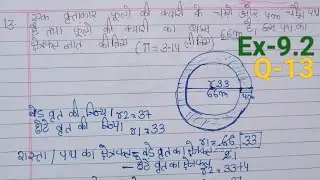 13. एक वृत्ताकार फूलों की क्यारी के चारों ओर 4m चौड़ा पथ
है तथा फूलों की क्यारी का व्यास 66m है, इस पथ का
क्षेत्रफल ज्ञात कीजिए (π = 3.14 लीजिए)
Ex-9.2
Q-13
r 33
66m
बड़े वृत की त्रिज्या r2 = 37
छोटे वृत की त्रिज्या r1 = 33
r1 = 66 33
रास्ता / पथ का क्षेत्रफल = बड़े वृत का क्षेत्रफल
- छोटे वृत का क्षेत्रफल
r2 = 33+4